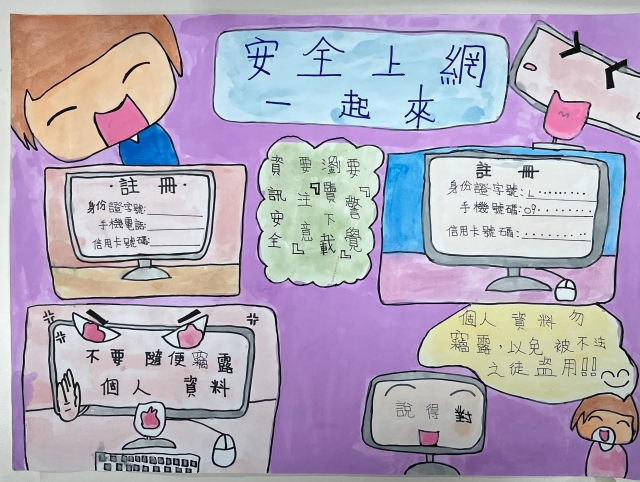 安全上網
一起來
·註冊·
身份證字號:
手機電話:
信用卡號碼:
資訊安全
要『注意』
瀏覽下載
要『警覺』
註冊
身份證字號:L.........
手機號碼:09........
信用卡號碼:.........
不要隨便竊露
個人資料
個人資料勿
竊露,以免被不法
之徒盜用!!
說得對